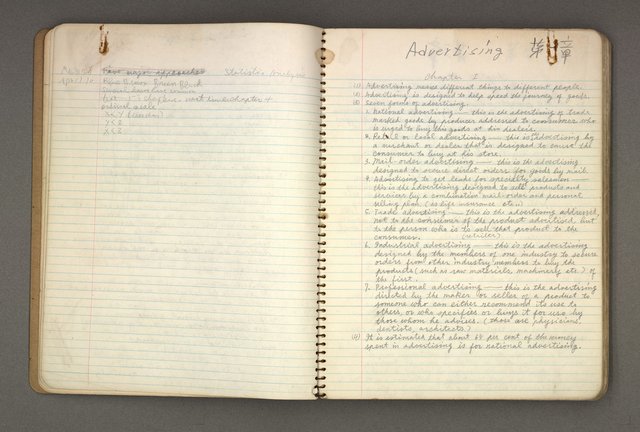 Statistics Analysis
April 10
first 1-5 chapters
Advertising 第一章
Chapter I
(1) Advertising means different things to different people.
(2) Advertising is designed to help speed the journey of goods.
(3) Seven forms of advertising.
1. National advertising — this is the advertising of trade
marked goods by producer addressed to consumers who
is urged to buy this goods at his dealers.
2. Retail or Local advertising — this is advertising by
a merchant or dealer that is designed to entice the
consumer to buy at his store.
3. Mail-order advertising — this is the advertising
designed to secure direct orders for goods by mail.
4. Advertising to get leads for specialty salesmen —
this is the advertising designed to sell products and
services by a combination mail-order and personal
selling plan. (as life insurance etc..)
5. Trade advertising — this is the advertising addressed,
not to the consumer of the product advertised, but
to the person who is to sell that product to the
consumer. (retailer)
6. Industrial advertising — this is the advertising
designed by the members of one industry to secure
orders from other industry members to buy the
products (such as raw materials, machinery etc.) of
the first.
7. Professional advertising — this is the advertising
directed by the maker or seller of a product to
someone who can either recommend its use to
others, or who specifies or buys it for use by
those whom he advises. (those are physicians,
dentists, architects)
(4) It is estimated that about 64 per cent of the money
spent in advertising is for national advertising.